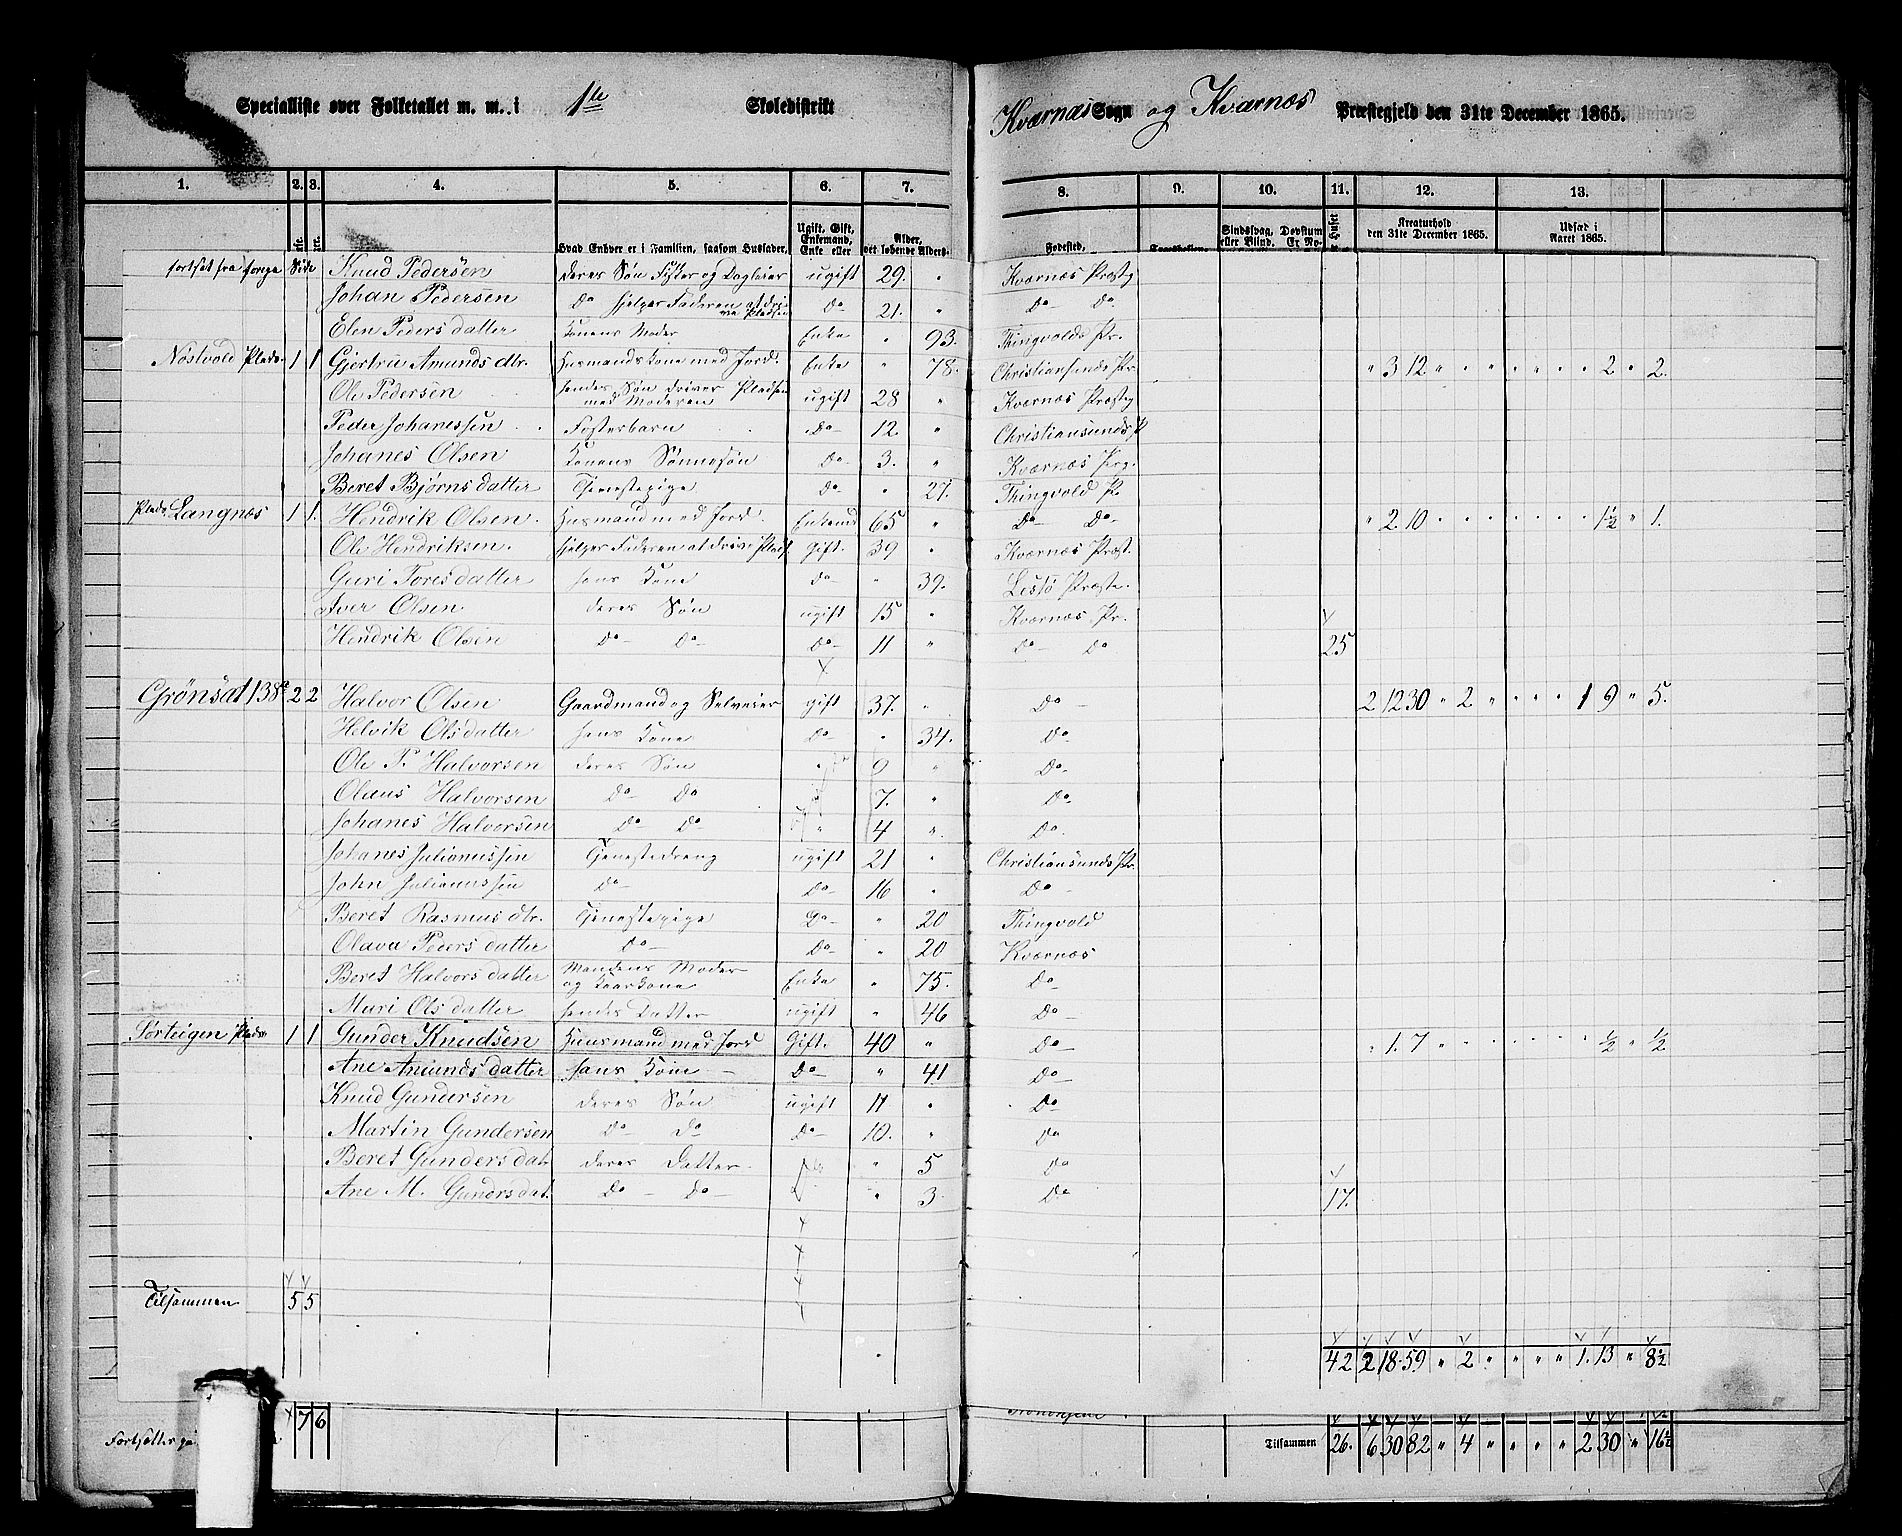 Specialliste over Folketallet m. m. i 1te Skoledistrikt Kværnæs Sogn og Kværnæs Præstegjeld den 31te December 1865.
1. 2. 3. 4. 5. 6. 7. 8. 9. 10. 11. 12. 13.
Hvad Enhver er i Familien, saasom Husfader, Ugift, Gift, Enkemand, Enke eller Alder, det løbende Alders- Fødested. Sindssvag, eller Blind. Døvstum Er No- Kreaturhold den 31te December 1865. Udsæd i Aaret 1865.
fortsat fra forige Side Knud Pedersen deres Søn Fisker og Dagleier ugift 29. " Kværnæs Præstg
Johan Pedersen Do hjelper Faderen at drive Pladsen Do 21. " Do Do.
Elen Pedersdatter Konens Moder Enke " 93. Thingvolds Pr.
Nostvold Plads 1 1 Gjertru Amunds dtr. Husmandskone med Jord. Enke " 78. Christiansunds Pr. " 3 12 " " " " " " 2 " 2.
Ole Pedersen hendes Søn driver Pladsen med Moderen ugift 28 " Kværnæs Præstg
Peder Johanessen Fosterbarn Do 12. " Christiansunds P
Johanes Olsen Konens Sønnesøn Do 3. " Kværnæs Prg.
Beret Bjørnsdatter Tjenestepige Do " 27. Thingvold P.
Plads Langnæs 1 1. Hendrik Olsen. Husmand med Jord. Enkemd 65 " Do Do " 2 10 " " " " " " 1½ " 1.
Ole Hendriksen. hjelper Faderen at drive Plads gift. 39 " Kværnæs Præst.
Guri Toresdatter hans Kone Do " 39. Lesto Præste.
Iver Olsen deres Søn ugift 15 " Kværnæs Pr.
Hendrik Olsen Do Do Do 11 " Do Do 25
Grönset 138a 2 2 Halvor Olsen Gaardmand og Selveier gift 37. " Do 2 12 30 " 2 " " " " 1 9 " 5.
Helvik Olsdatter hans Kone Do " 34. Do
Ole P. Halvorsen deres Søn " 9 " Do
Olaus Halvorsen Do Do " 7. " Do
Johanes Halvorsen Do Do " 4 " Do.
Johanes Julianussen Tjenestedreng ugift 21 " Christiansunds Pr.
John Julianussen Do Do 16 " Do
Beret Rasmus dtr. Tjenestepige Do " 20 Thingvold
Olava Pedersdatter Do Do " 20 Kværnæs
Beret Halvorsdatter Mandens Moder og Kaarkone Enke " 75. Do
Mari Olsdatter hendes Datter ugift " 46 Do
Sørteigen Plads 1 1 Gunder Knudsen Huusmand med Jord Gift. 40 " Do " 1. 7 " " " " " " ½ " ½
Ane Amundsdatter hans Kone Do " 41 Do
Knud Gundersen deres Søn ugift 11 " Do
Martin Gundersen Do Do Do 10. " Do
Beret Gunders dat deres Datter " 5 Do
Ane M. Gundrsdat. Do Do " 3. Do 17.
Tilsammen 5 5
42 2 18 59 " 2 " " " " 1. 13 " 8½
Fortsættes paa 7 6 Tilsammen 26. 6 30 82 " 4 " " " " 2 30 " 16½